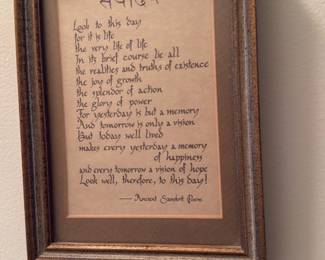 Look to this day
for it is life
the very life of life
In its brief course lie all
the realities and truths of existence
the joy of growth
the splendor of action
the glory of power
For yesterday is but a memory
And tomorrow is only a vision
But today well lived
makes every yesterday a memory
of happiness
and every tomorrow a vision of hope
Look well, therefore, to this day!
— Ancient Sanskrit Poem